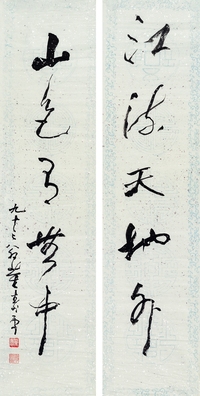 江流天地外
山色有无中
九十八翁董寿平